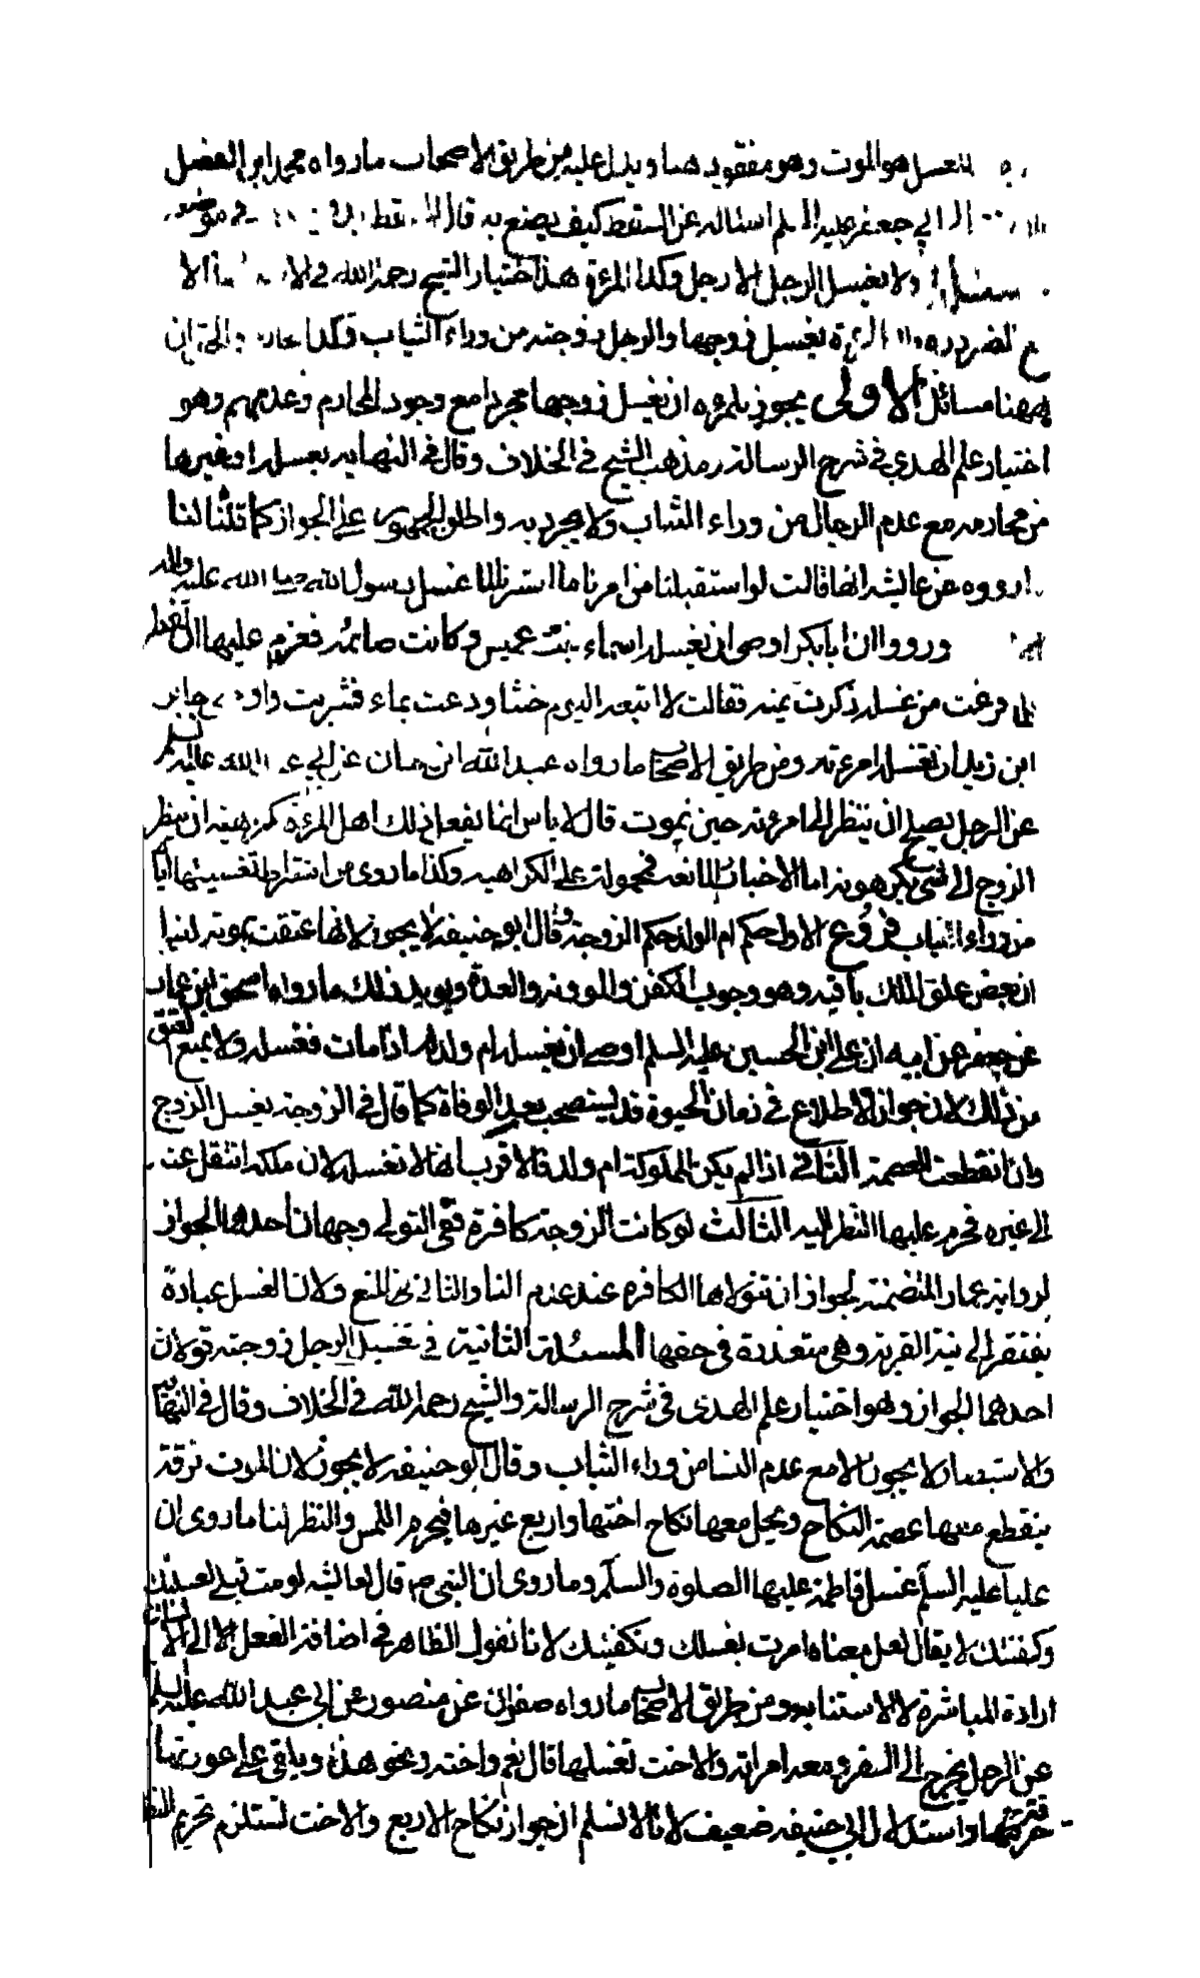 الغسل هو الموت وهو مفقود هنا ويدل عليه من طريق الاصحاب ما رواه محمد ابن الفضيل
الى ابي جعفر عليه السلم اسئاله عن السقط كيف يصنع به قال السقط يدفن في موضعه
ولا يغسل الرجل الا رجل وكذا المرءة هذا اختيار الشيخ رحمه الله في الا
المرءة تغسل زوجها والرجل زوجته من وراء الثياب وكذا
ههنا مسائل الاولى يجوز للمرءه ان تغسل زوجها مجردا مع وجود المحارم وعدمهم وهو
اختيار علم الهدى في شرح الرسالة ومذهب الشيخ في الخلاف وقال في النهايه تغسله او غيرها
من محارمه مع عدم الرجال من وراء الثياب ولا يجرد به واطلق الجمهور على الجواز كما قلناه لنا
ما رووه عن عايشه انها قالت لو استقبلنا من امرنا ما استدبرنا لما غسل رسول الله صلى الله عليه واله
ورووا ان ابا بكر اوصى ان تغسله اسماء بنت عميس وكانت صائمه فعزم عليها ان تفطر
فلما فرغت من غسله ذكرت يمينه فقالت لا اتبعه اليوم حنثا ودعت بماء فشربت واوصى جابر
ابن زيد ان تغسله امرءته ومن طريق الاصحاب ما رواه عبد الله ابن سنان عن ابي عبد الله عليه السلم
عن الرجل يصلح ان ينظر الى امرءته حين تموت قال لا باس انما يفعل ذلك اهل المرءة كراهية ان ينظر
الزوج الى شئ يكرهونه اما الاخبار المانعه فمحمولة على الكراهيه وكذا ما روى من اشتراط تغسيلها اياه
من وراء الثياب فروع الاول حكم ام الولد حكم الزوجة وقال ابو حنيفه لا يجوز لانها عتقت بموته لنا
ان بعض علق الملك باقيه وهو وجوب الكفن والموونه والعدة ويويد ذلك ما رواه اسحق ابن عمار
عن جعفر عن ابيه ان علي ابن الحسين عليه السلم اوصى ان تغسله ام ولد له اذا مات فغسلته ولا يمنع العتق
من ذلك لان جواز الاطلاع في زمان الحيوة قد يستصحب بعد الوفاة كما قال في الزوجة تغسل الزوج
وان انقطعت العصمة الثاني اذا لم يكن المملوكة ام ولد فالاقرب انها لا تغسله لان ملكه انتقل عنه
الى غيره فحرم عليها النظر اليه الثالث لو كانت الزوجة كافرة ففي التولي وجهان احدهما الجواز
لرواية عمار المتضمنة لجواز ان تتولاها الكافره عند عدم النسا والثاني المنع ولان الغسل عبادة
يفتقر الى نية القربة وهي متعذرة في حقها المسئلة الثانية في تغسيل الرجل زوجته قولان
احدهما الجواز وهو اختيار علم الهدى في شرح الرسالة والشيخ رحمه الله في الخلاف وقال في النهايه
والاستبصار لا يجوز الا مع عدم النسا من وراء الثياب وقال ابو حنيفه لا يجوز لان الموت فرقة
ينقطع معها عصمة النكاح ويحل معها نكاح اختها واربع غيرها فيحرم اللمس والنظر لنا ما روى ان
عليا عليه السلم غسل فاطمة عليها الصلوة والسلم وما روى ان النبي ص قال لعايشه لو مت قبلي لغسلتك
وكفنتك لا يقال لعل معناه امرت بغسلك وتكفينك لانا نقول الظاهر في اضافة الفعل الى الانسان
ارادة المباشرة لا الاستنابه ومن طريق الاصحاب ما رواه صفوان عن منصور عن ابي عبد الله عليه السلم
عن الرجل يخرج الى السفر ومعه امراته والاخت تغسلها قال نعم واخته ونحو هذا ويلقى على عورتها
خرقة واستدلال ابي حنيفه ضعيف لانا لا نسلم ان جواز نكاح الاربع والاخت تستلزم تحريم النظر